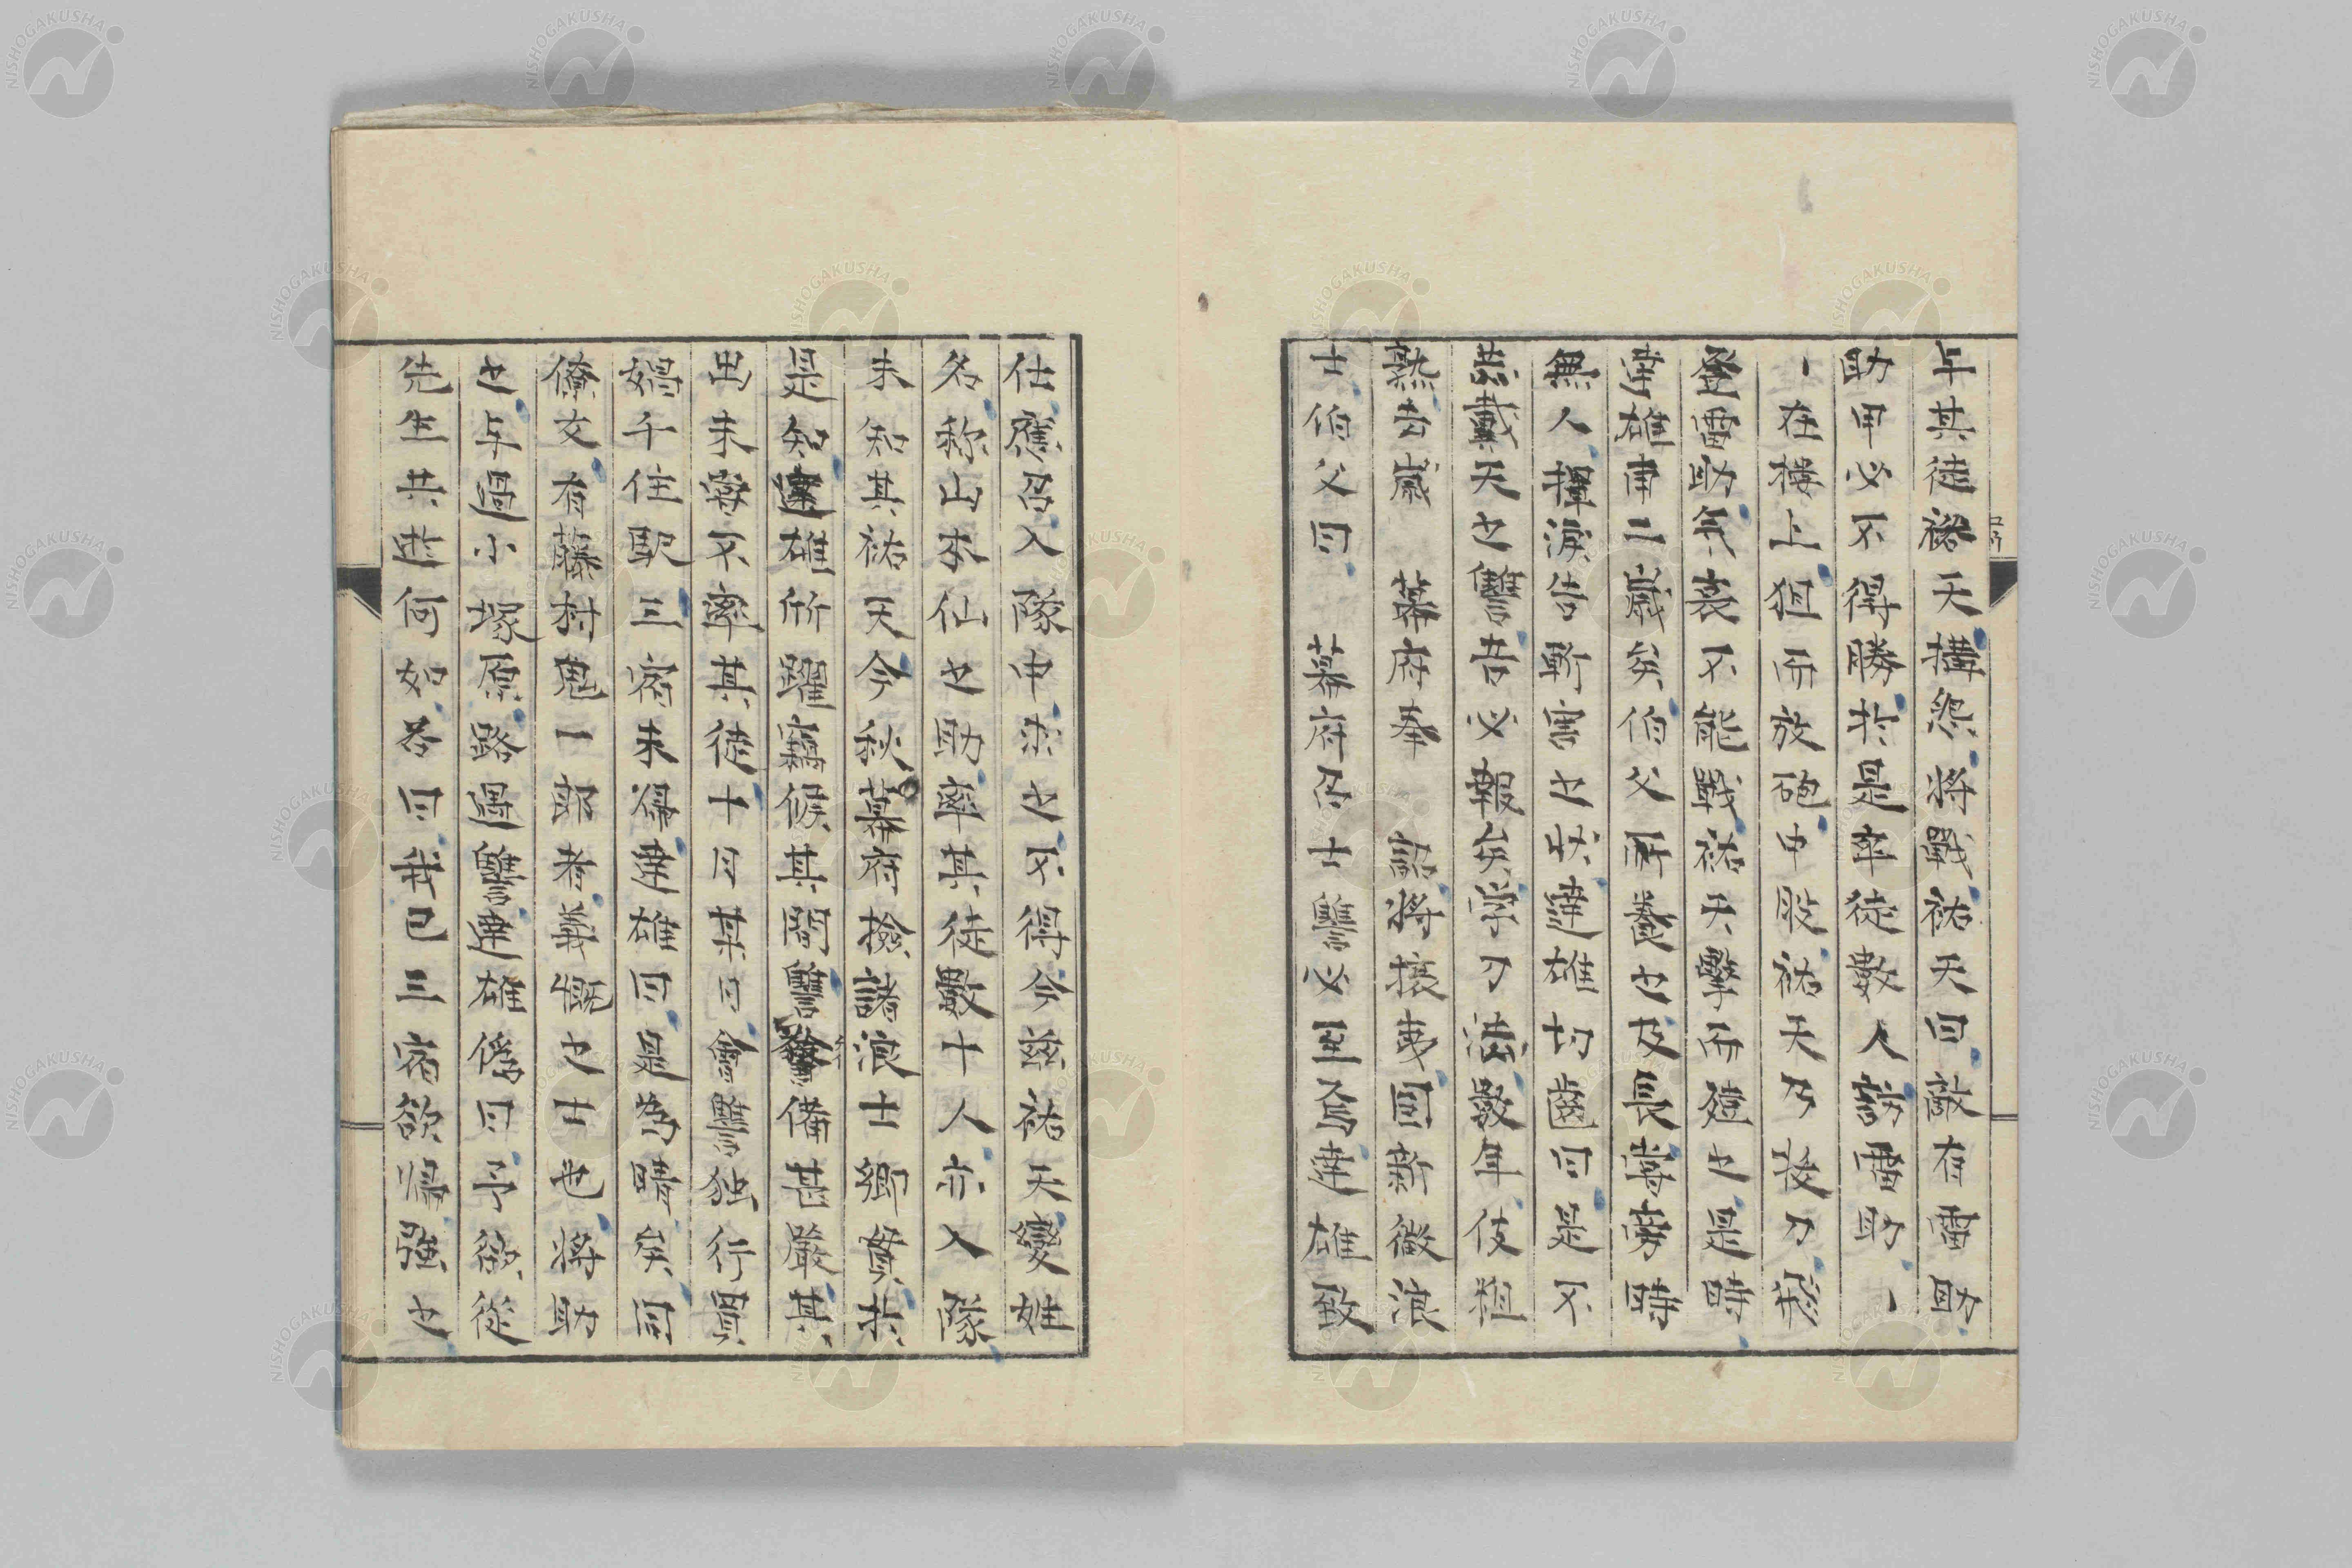 与其徒祐天搆怨将戰祐天曰敵有雷助
助甲必不得勝於是率徒數人訪雷助丶
丶在楼上狙而放砲中股祐天乃投刀
登雷助年衰不能戰祐天擊而殪之是時
達雄甫二歳矣伯父所養之及長時
無人揮淚告斬害之状達雄切齒曰是不
共戴天之讐吾必報矣学刀法數年伎粗
熟去歳 幕府奉 詔将攘夷回新徴浪
士伯父曰 幕府召士讐必至焉達雄致
仕應召入隊中求之不得今茲祐天變姓
名称山本仙之助率其徒數十人亦入隊
未知其祐天今秋幕府撿諸浪士郷貫於
是知達雄所躍竊候其間讐警備甚嚴其
出未嘗不率其徒十月某日會讐独行買
娼千住駅三宿未得達雄曰是為時矣同
僚友有藤村鬼一郎者義慨之士也将助
之与過小塚原路遇讐達雄偽曰予欲從
先生共遊何如答曰我已三宿欲帰強之
NISHOGAKUSHA